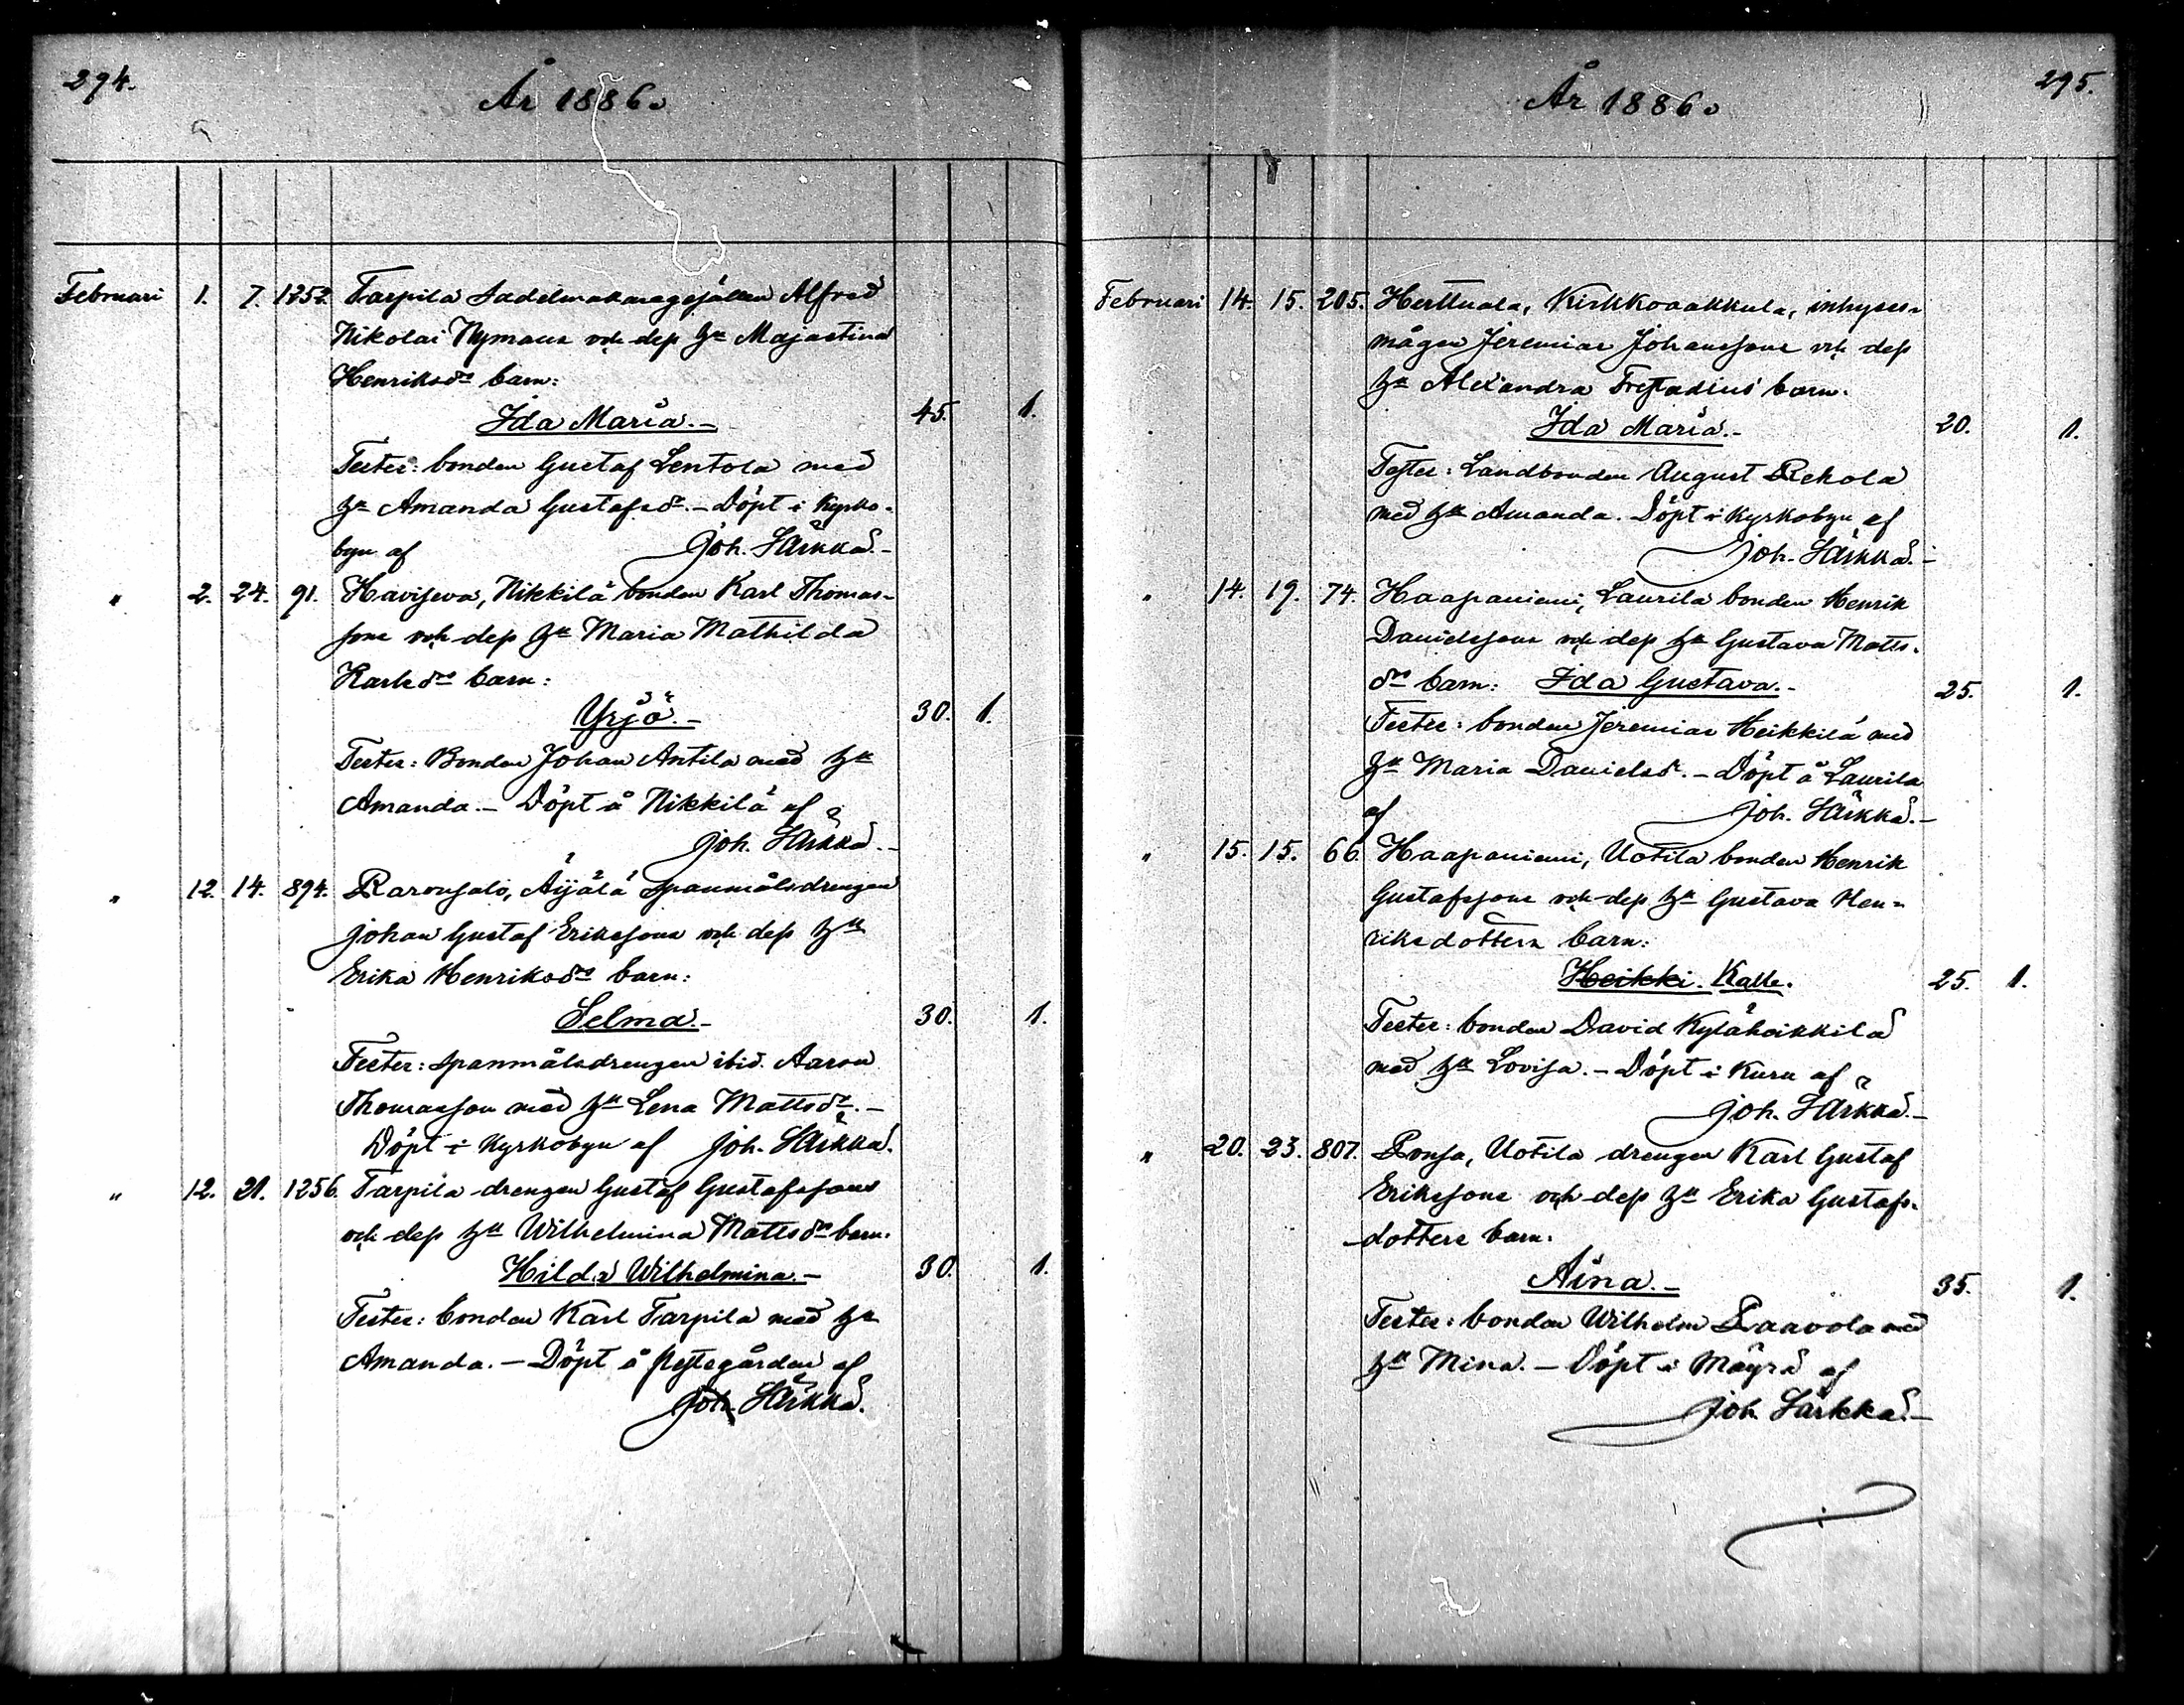 294.
År 1886.
Februari 1. 7. 1252. Tarpila Sadelmakaregesällen Alfred
Nikolai Nymans och dess h:u Majastina
Henriksd:rs barn:
Ida Maria.- 45. 1.
Testes: bonden Gustaf Lentola med
h:u Amanda Gustafsd:r.- Döpt i kyrko-
byn af Joh. Särkkä.-
" 2. 24. 91. Haviseva, Nikkilä bonden Karl Thomas-
sons och dess h:u Maria Mathilda
Karlsd:rs barn:
Yrjö.- 30. 1.
Testes: Bonden Johan Antila med h:u
Amanda.- Döpt å Nikkilä af
Joh. Särkkä.-
" 12. 14. 894. Raronsalo, Äijälä spanmålsdrengen
Johan Gustaf Erikssons och dess h:u
Erika Henriksd:rs barn:
Selma.- 30. 1.
Testes: spanmålsdrengen ibid. Aaron
Thomasson med h:u Lena Mattsd:r.-
Döpt i kyrkobyn af Joh. Särkkä.
" 12. 21. 1256. Tarpila drengen Gustaf Gustafssons
och dess h:u Wilhelmina Mattsd:rs barn.
Hilda Wilhelmina.- 30. 1.
Testes: bonden Karl Tarpila med h:u
Amanda.- Döpt å prestgården af
Joh. Särkkä.
295.
År 1886.
Februari 14. 15. 205. Herttuala, Kirkkovaakkula, inhyses-
mågen Jeremias Johanssons och dess
h:u Alexandra Frestadius barn.
Ida Maria.- 20. 1.
Testes: Landbonden August Rekola
med h:u Amanda. Döpt i kyrkobyn af
Joh. Särkkä.-
" 14. 19. 74. Haapaniemi, Laurila bonden Henrik
Danielssons och dess h:u Gustava Matts-
d:rs barn: Ida Gustava.- 25. 1.
Testes: bonden Jeremias Heikkilä med
h:u Maria Danielsd:r.- Döpt å Laurila
af Joh. Särkkä.-
" 15. 15. 66. Haapaniemi, Uotila bonden Henrik
Gustafssons och dess h:u Gustava Hen-
riksdotters barn:
Heikki. Kalle. 25. 1.
Testes: bonden David Kyläheikkilä
med h:u Lovisa.- Döpt i Kuru af
Joh. Särkkä.-
" 20. 23. 807. Ponsa, Uotila drengen Karl Gustaf
Erikssons och dess h:u Erika Gustafs-
-dotters barn.
Aina.- 35. 1.
Testes: bonden Wilhelm Paavola med
h:u Mina.- Döpt i Mäyrä af
Joh. Särkkä.-